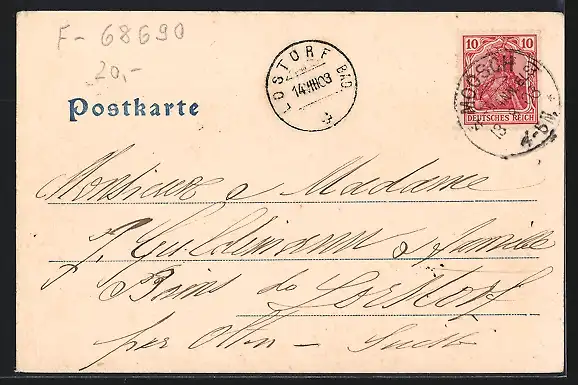 F- 68690
20,-
Postkarte
LOSTORF BAD
14.VIII.08
10 10
DEUTSCHES REICH
MOOSCH
4-5N.
Monsieur & Madame
J. Guldimann & famille
Bains de Lostorf
per Olten - Suisse